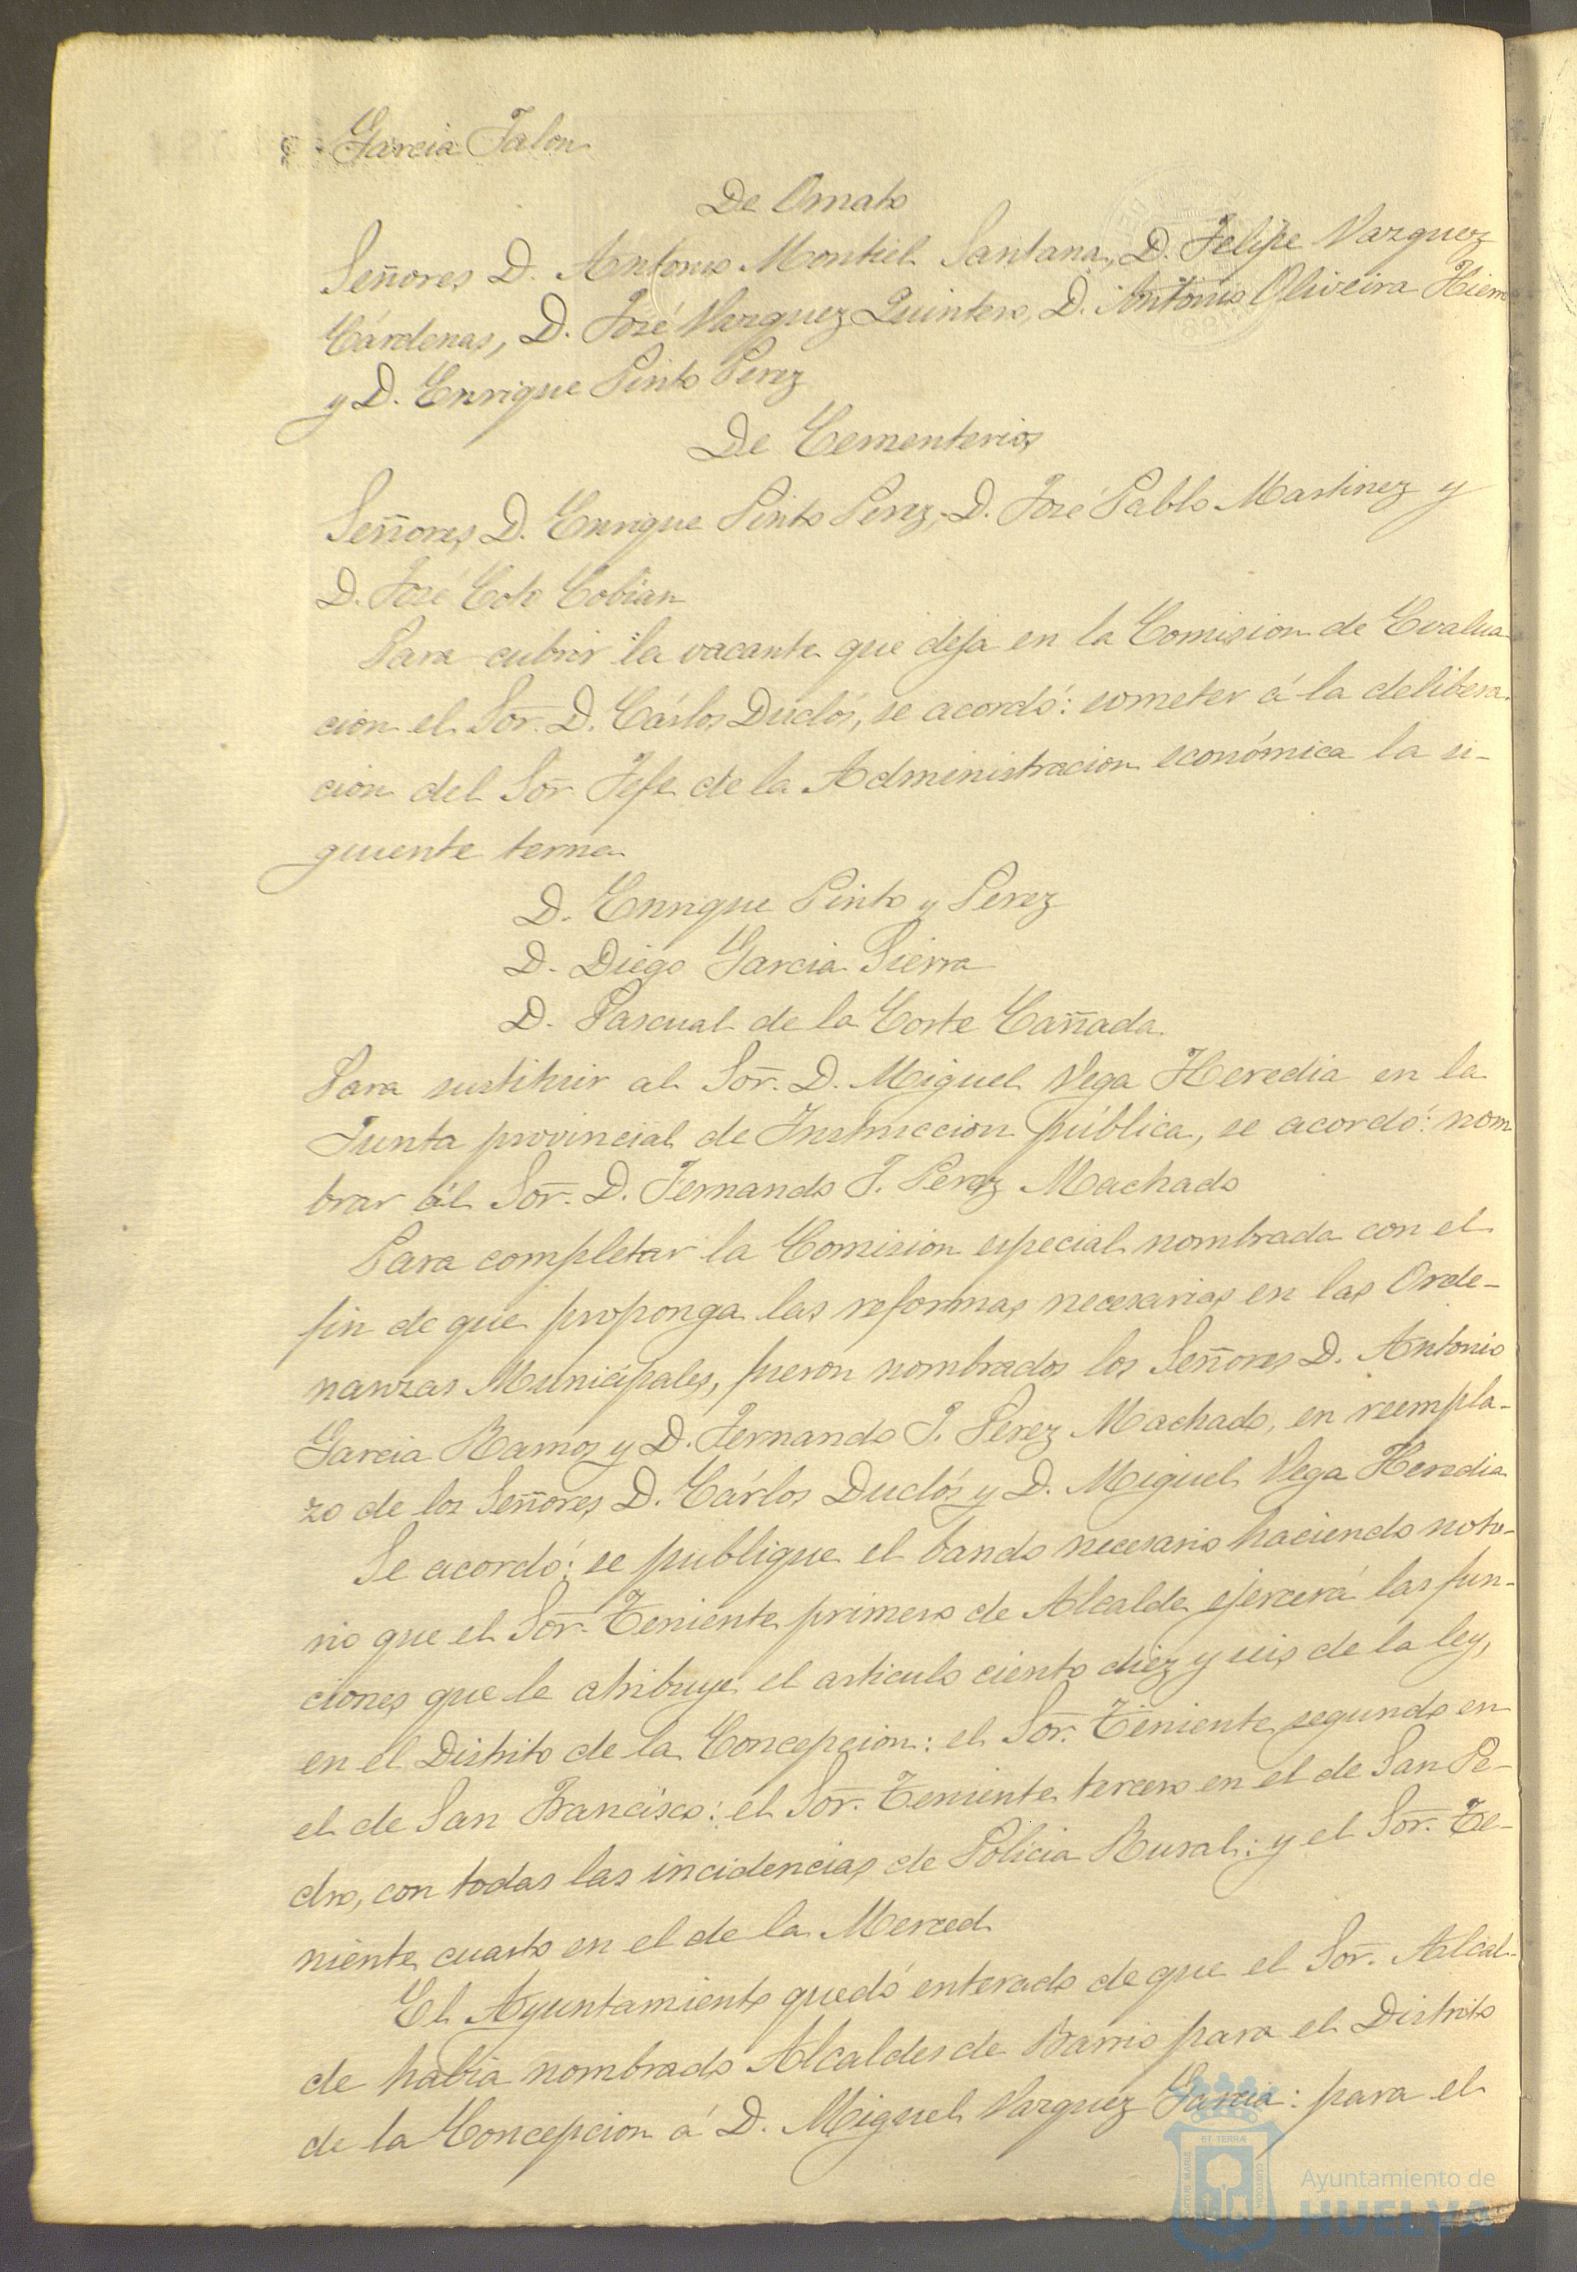 Garcia Jalon
De Ornato
Señores D. Antonio Montiel Santana, D. Felipe Vazquez
Cárdenas, D. José Vazquez Quintero, D. Antonio Oliveira Hierro
y D. Enrique Pinto Perez
De Cementerios
Señores D. Enrique Pinto Perez, D. José Pablo Martinez y
D. José Coto Cobian
Para cubrir la vacante que deja en la Comision de Evalua-
cion el Sor. D. Cárlos Duclós, se acordó: someter á la delibera-
cion del Sor Jefe de la Administracion económica la si-
guiente terna
D. Enrique Pinto y Perez
D. Diego Garcia Sierra
D. Pascual de la Corte Cañada
Para sustituir al Sor. D. Miguel Vega Heredia en la
Junta provincial de Instruccion pública, se acordó: nom
brar ál Sor. D. Fernando J. Perez Machado
Para completar la Comision especial nombrada con el
fin de que proponga las reformas necesarias en las Orde-
nanzas Municipales, fueron nombrados los Señores D. Antonio
Garcia Ramos y D. Fernando J. Perez Machado, en reempla-
zo de los Señores D. Cárlos Duclós y D. Miguel Vega Heredia
Se acordó: se publique el bando necesario haciendo noto-
rio que el Sor. Teniente primero de Alcalde ejercerá las fun-
ciones que le atribuye el articulo ciento diez y seis de la ley,
en el Distrito de la Concepcion: el Sor. Teniente segundo en
el de San Francisco: el Sor. Teniente tercero en el de San Pe-
dro, con todas las incidencias de Policia Rural: y el Sor. Te-
niente cuarto en el de la Merced
El Ayuntamiento quedó enterado de que el Sor. Alcal-
de habia nombrado Alcaldes de Barrio para el Distrito
de la Concepcion á D. Miguel Vazquez Garcia: para el
Ayuntamiento de
HUELVA